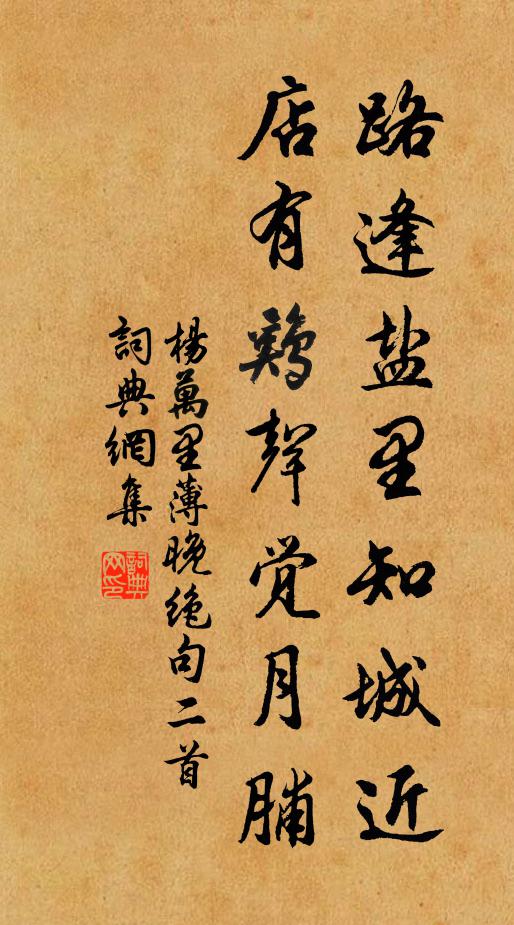 路逢盐里知城近
店有鷄聲觉月脯
楊萬里薄晚绝句二首
詞典網集
詞典网印